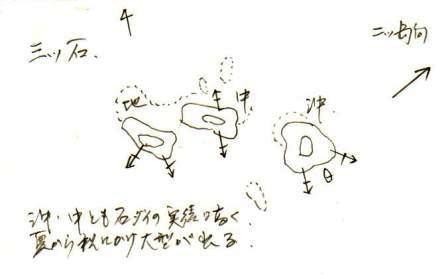 三ツ石.
二ツ島向
地
中
沖
沖・中とも石ダイの実績は高く
夏から秋にかけ大型が出る.